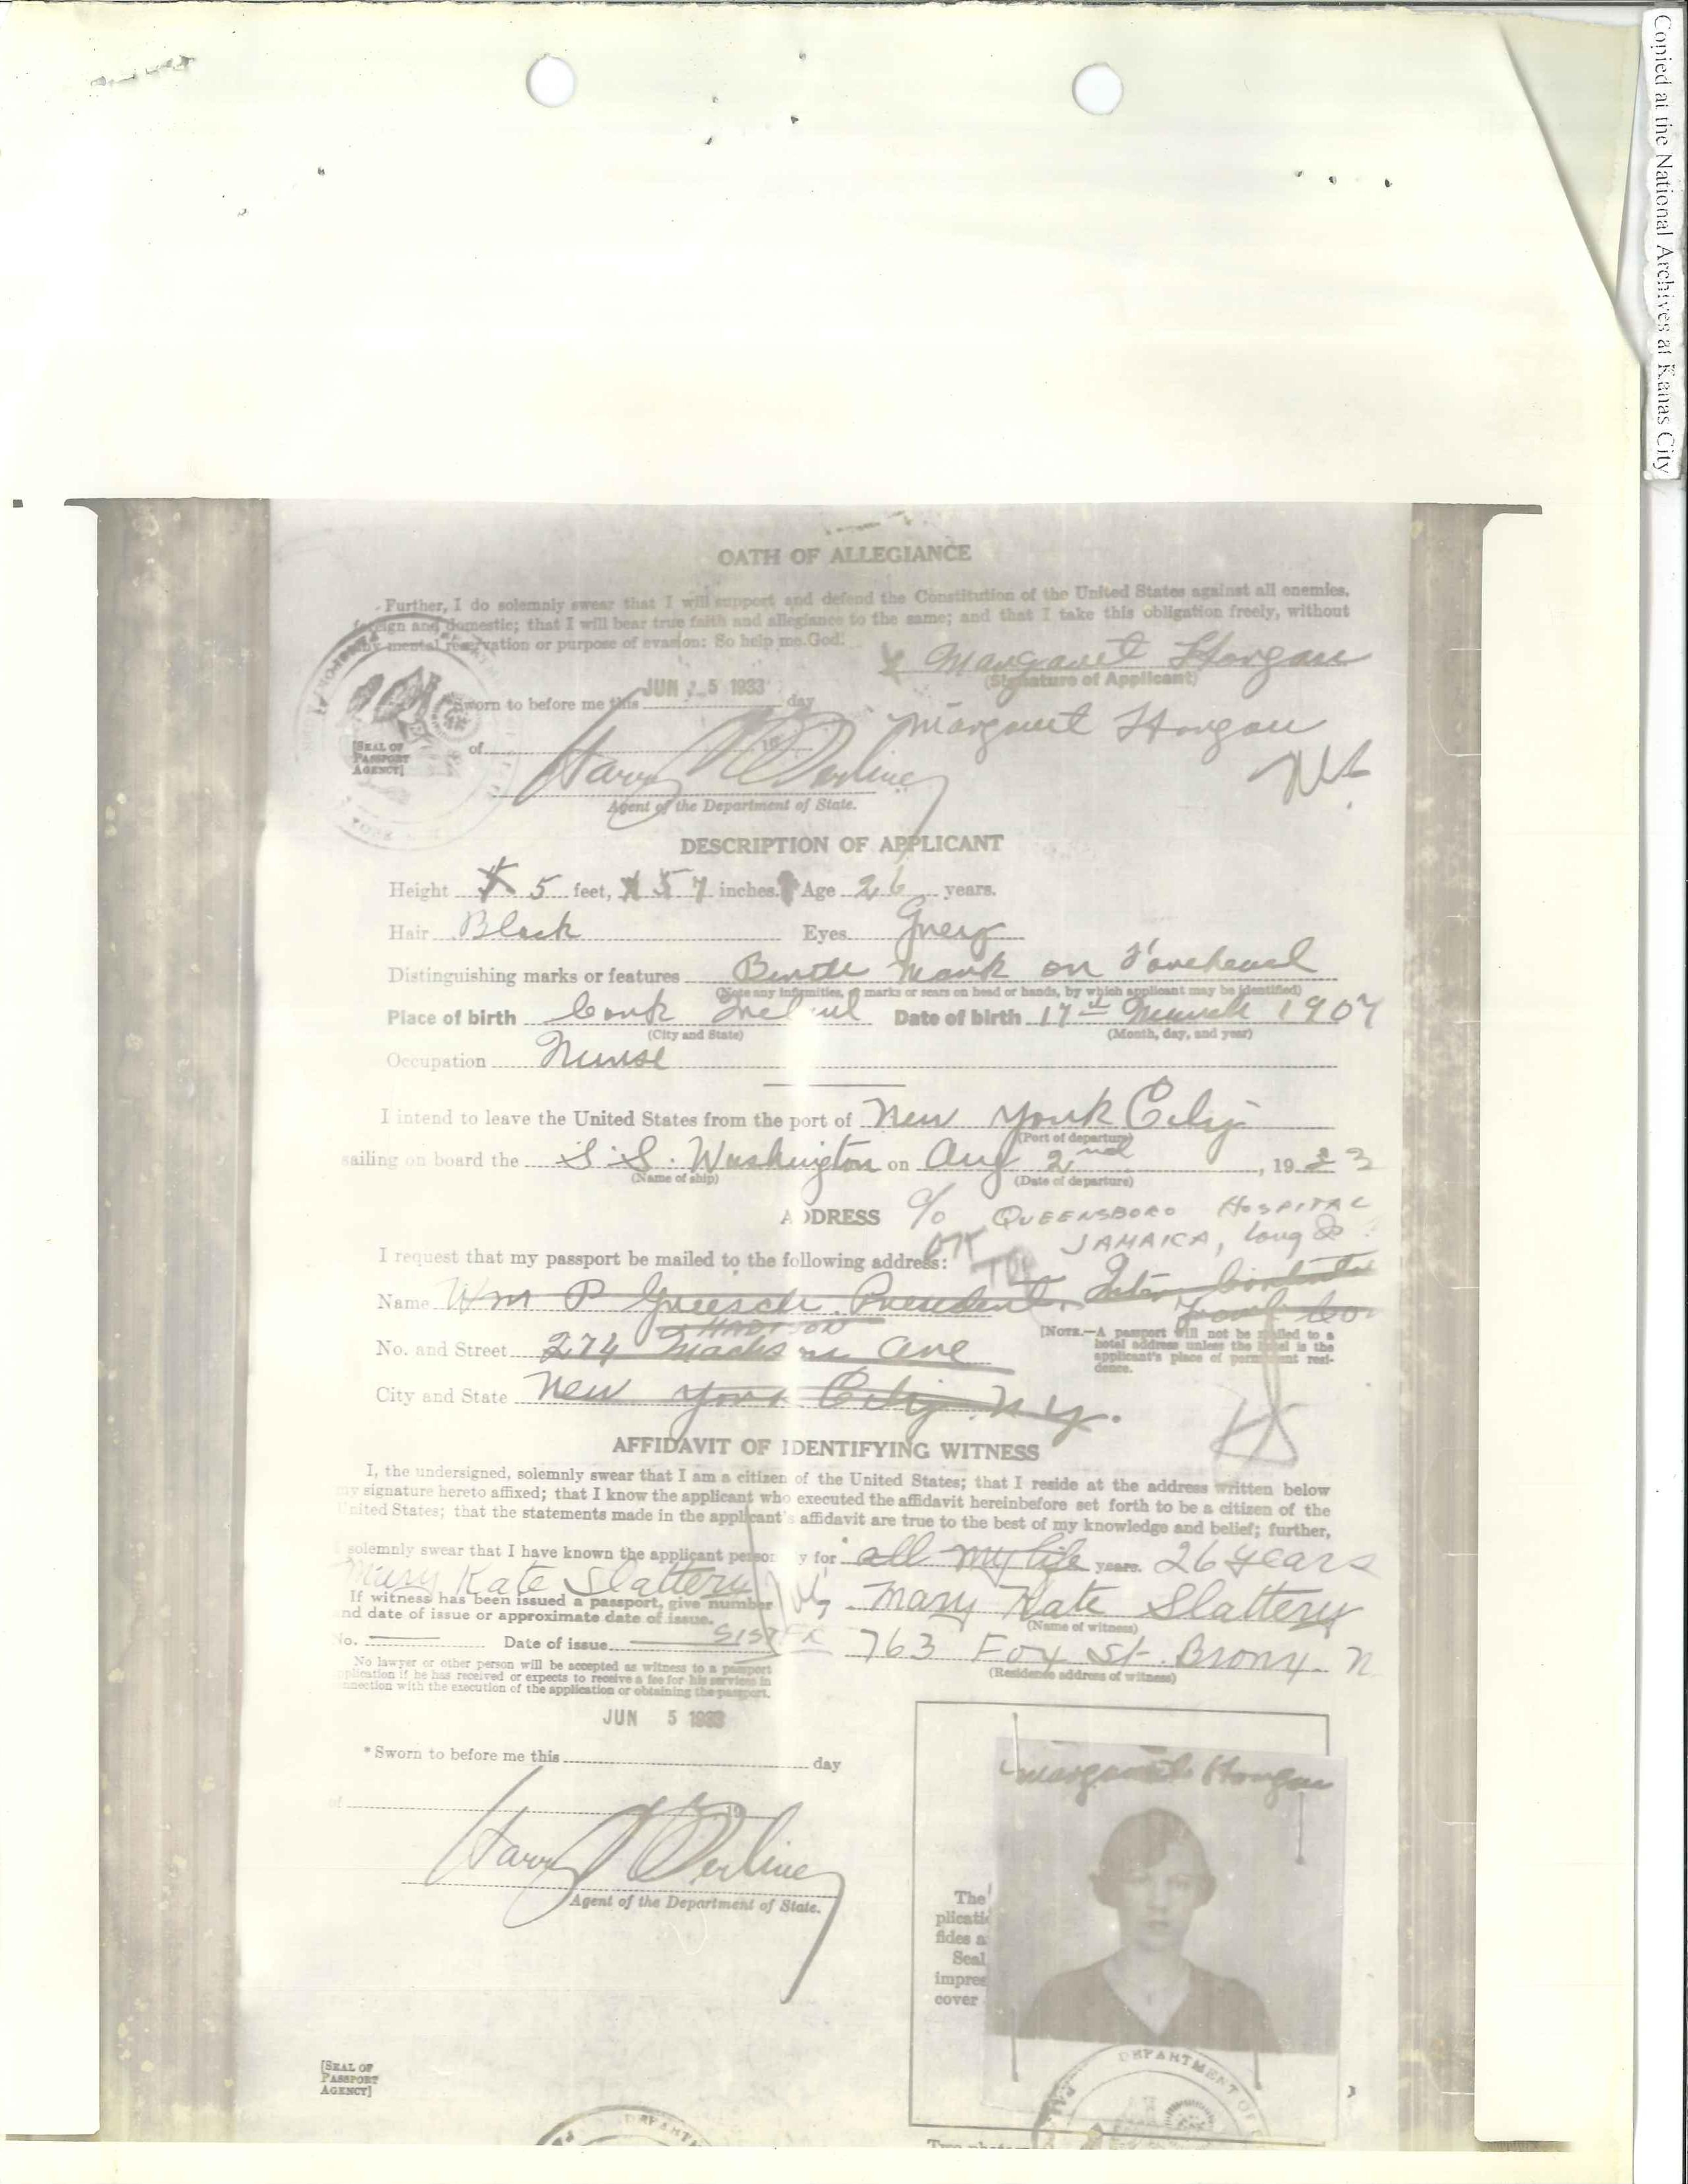 Copied at the National Archives at Kanas City
OATH OF ALLEGIANCE
Further, I do solemnly swear that I will support and defend the Constitution of the United States against all enemies,
foreign and domestic; that I will bear true faith and allegiance to the same; and that I take this obligation freely, without
any mental reservation or purpose of evasion: So help me God.
Margaret Horgan
(Signature of Applicant)
JUN 5 1933
Sworn to before me this day
Margaret Horgan
[SEAL OF
PASSPORT
AGENCY]
of 19
Harry
Agent of the Department of State.
DESCRIPTION OF APPLICANT
Height 5 feet, 5 7 inches. Age 26 years.
Hair Black Eyes Grey
Distinguishing marks or features Birth Mark on Forehead
(Note any infirmities, marks or scars on head or hands, by which applicant may be identified)
Place of birth Cork Ireland Date of birth 17th March 1907
(City and State) (Month, day, and year)
Occupation Nurse
I intend to leave the United States from the port of New York City
(Port of departure)
sailing on board the S.S. Washington on Aug 2nd, 1933
(Name of ship) (Date of departure)
ADDRESS c/o QUEENSBORO HOSPITAL
JAMAICA, Long
I request that my passport be mailed to the following address:
Name Wm P President,
MADISON
[NOTE.—A passport will not be mailed to a
hotel address unless the hotel is the
applicant's place of permanent resi-
dence.
No. and Street 274 Ave
City and State New York City N.Y.
AFFIDAVIT OF IDENTIFYING WITNESS
I, the undersigned, solemnly swear that I am a citizen of the United States; that I reside at the address written below
my signature hereto affixed; that I know the applicant who executed the affidavit hereinbefore set forth to be a citizen of the
United States; that the statements made in the applicant's affidavit are true to the best of my knowledge and belief; further,
I solemnly swear that I have known the applicant personally for all my life years. 26 years
Mary Kate Slattery
Mary Kate Slattery
(Name of witness)
If witness has been issued a passport, give number
and date of issue or approximate date of issue.
No. Date of issue SISTER
763 Fox St. Bronx N
(Residence address of witness)
No lawyer or other person will be accepted as witness to a passport
application if he has received or expects to receive a fee for his services in
connection with the execution of the application or obtaining the passport.
JUN 5 1933
*Sworn to before me this day
of 19
Harry
Agent of the Department of State.
Margaret Horgan
The
plicatio
fides a
Seal
impres
cover
[SEAL OF
PASSPORT
AGENCY]
DEPARTMENT OF